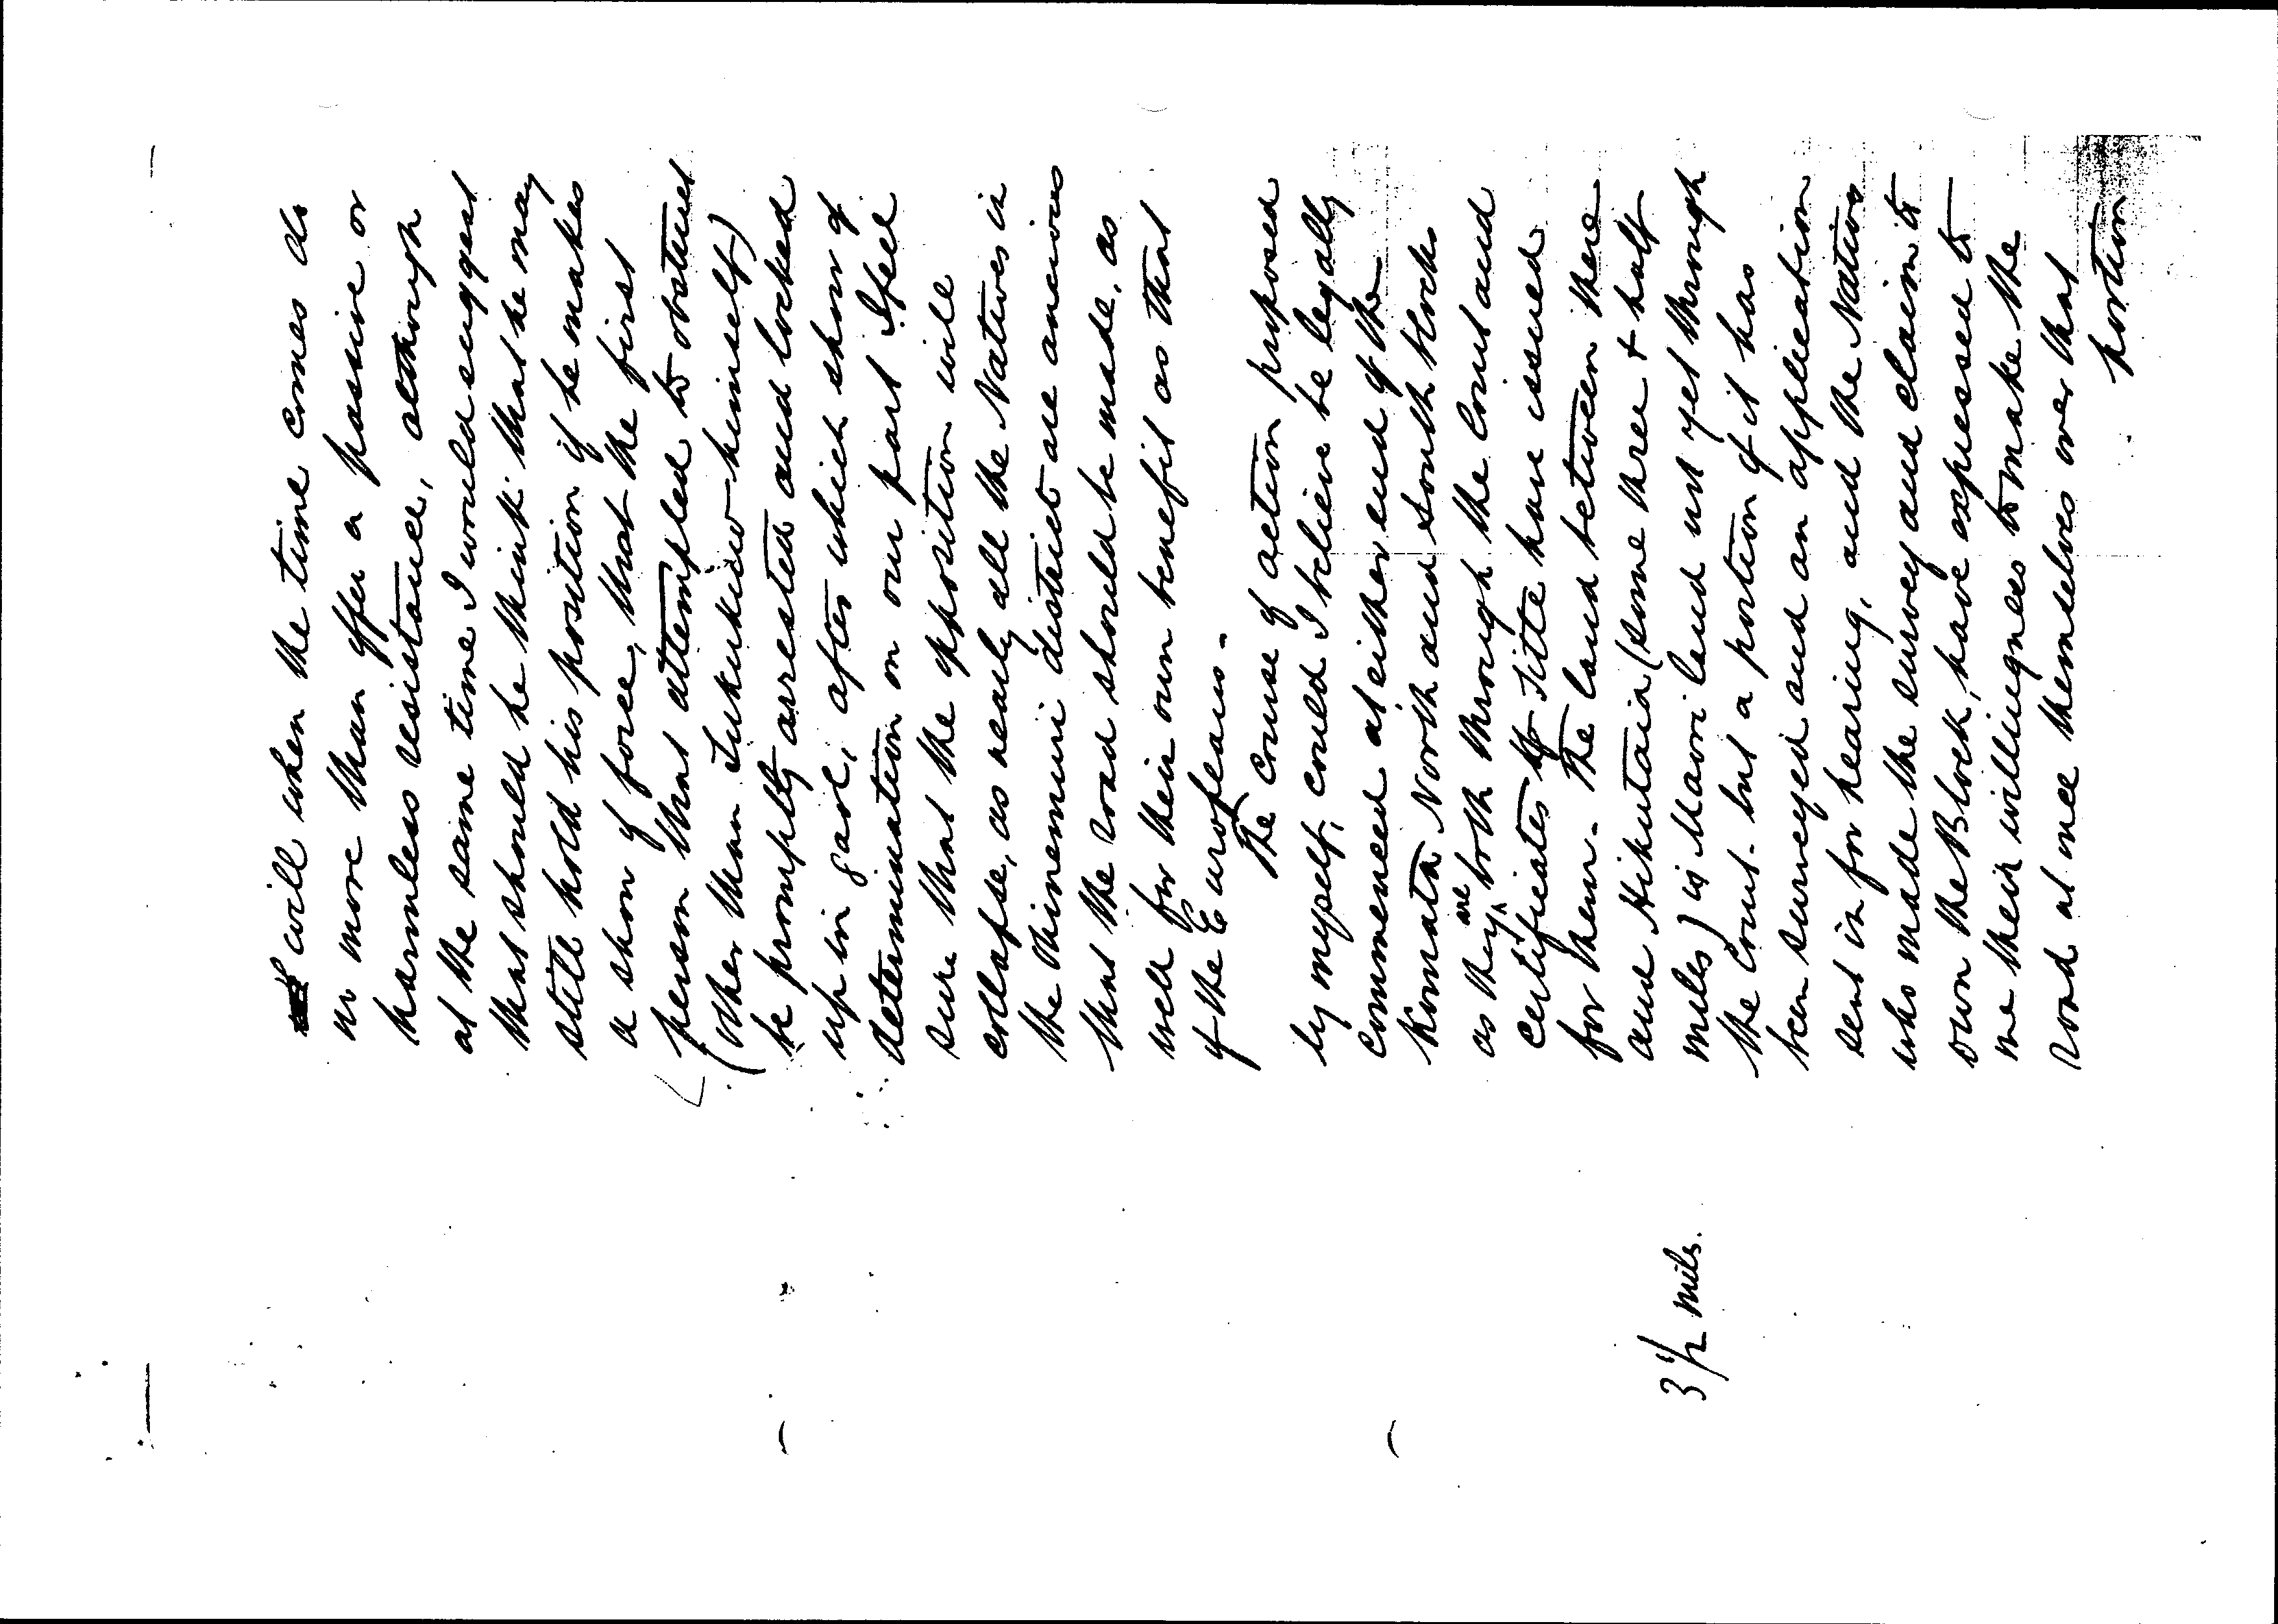 will when the time comes do
no more than offer a passive or
harmless resistance, although
at the same time I would suggest
that should he think that he may
still hold his position if he makes
a show of force, that the first
person that attempted to obstruct
(other than Tukukino himself)
be promptly arrested and locked
up in gaol, after which show of
determination on our part I feel
sure that the opposition will
collapse, as nearly all the Natives in
the Ohinemuri district are anxious
that the road should be made, as
well for their own benefit as that
of the Europeans.-
The course of action proposed
by myself, could I believe be legally
commenced at either end of the
Komata North and South blocks
as they are both through the Court and
certificates of title have issued
for them - The land between there
and Hikutaia (some three & half
miles) is Maori land not yet through
the Court - but a portion of it has
been surveyed and an application
sent in for hearing, and the Natives
who made the survey and claim to
own the Block, have expressed to
me their willingness to make the
road at once themselves over that
portion
3 1/2 mils.